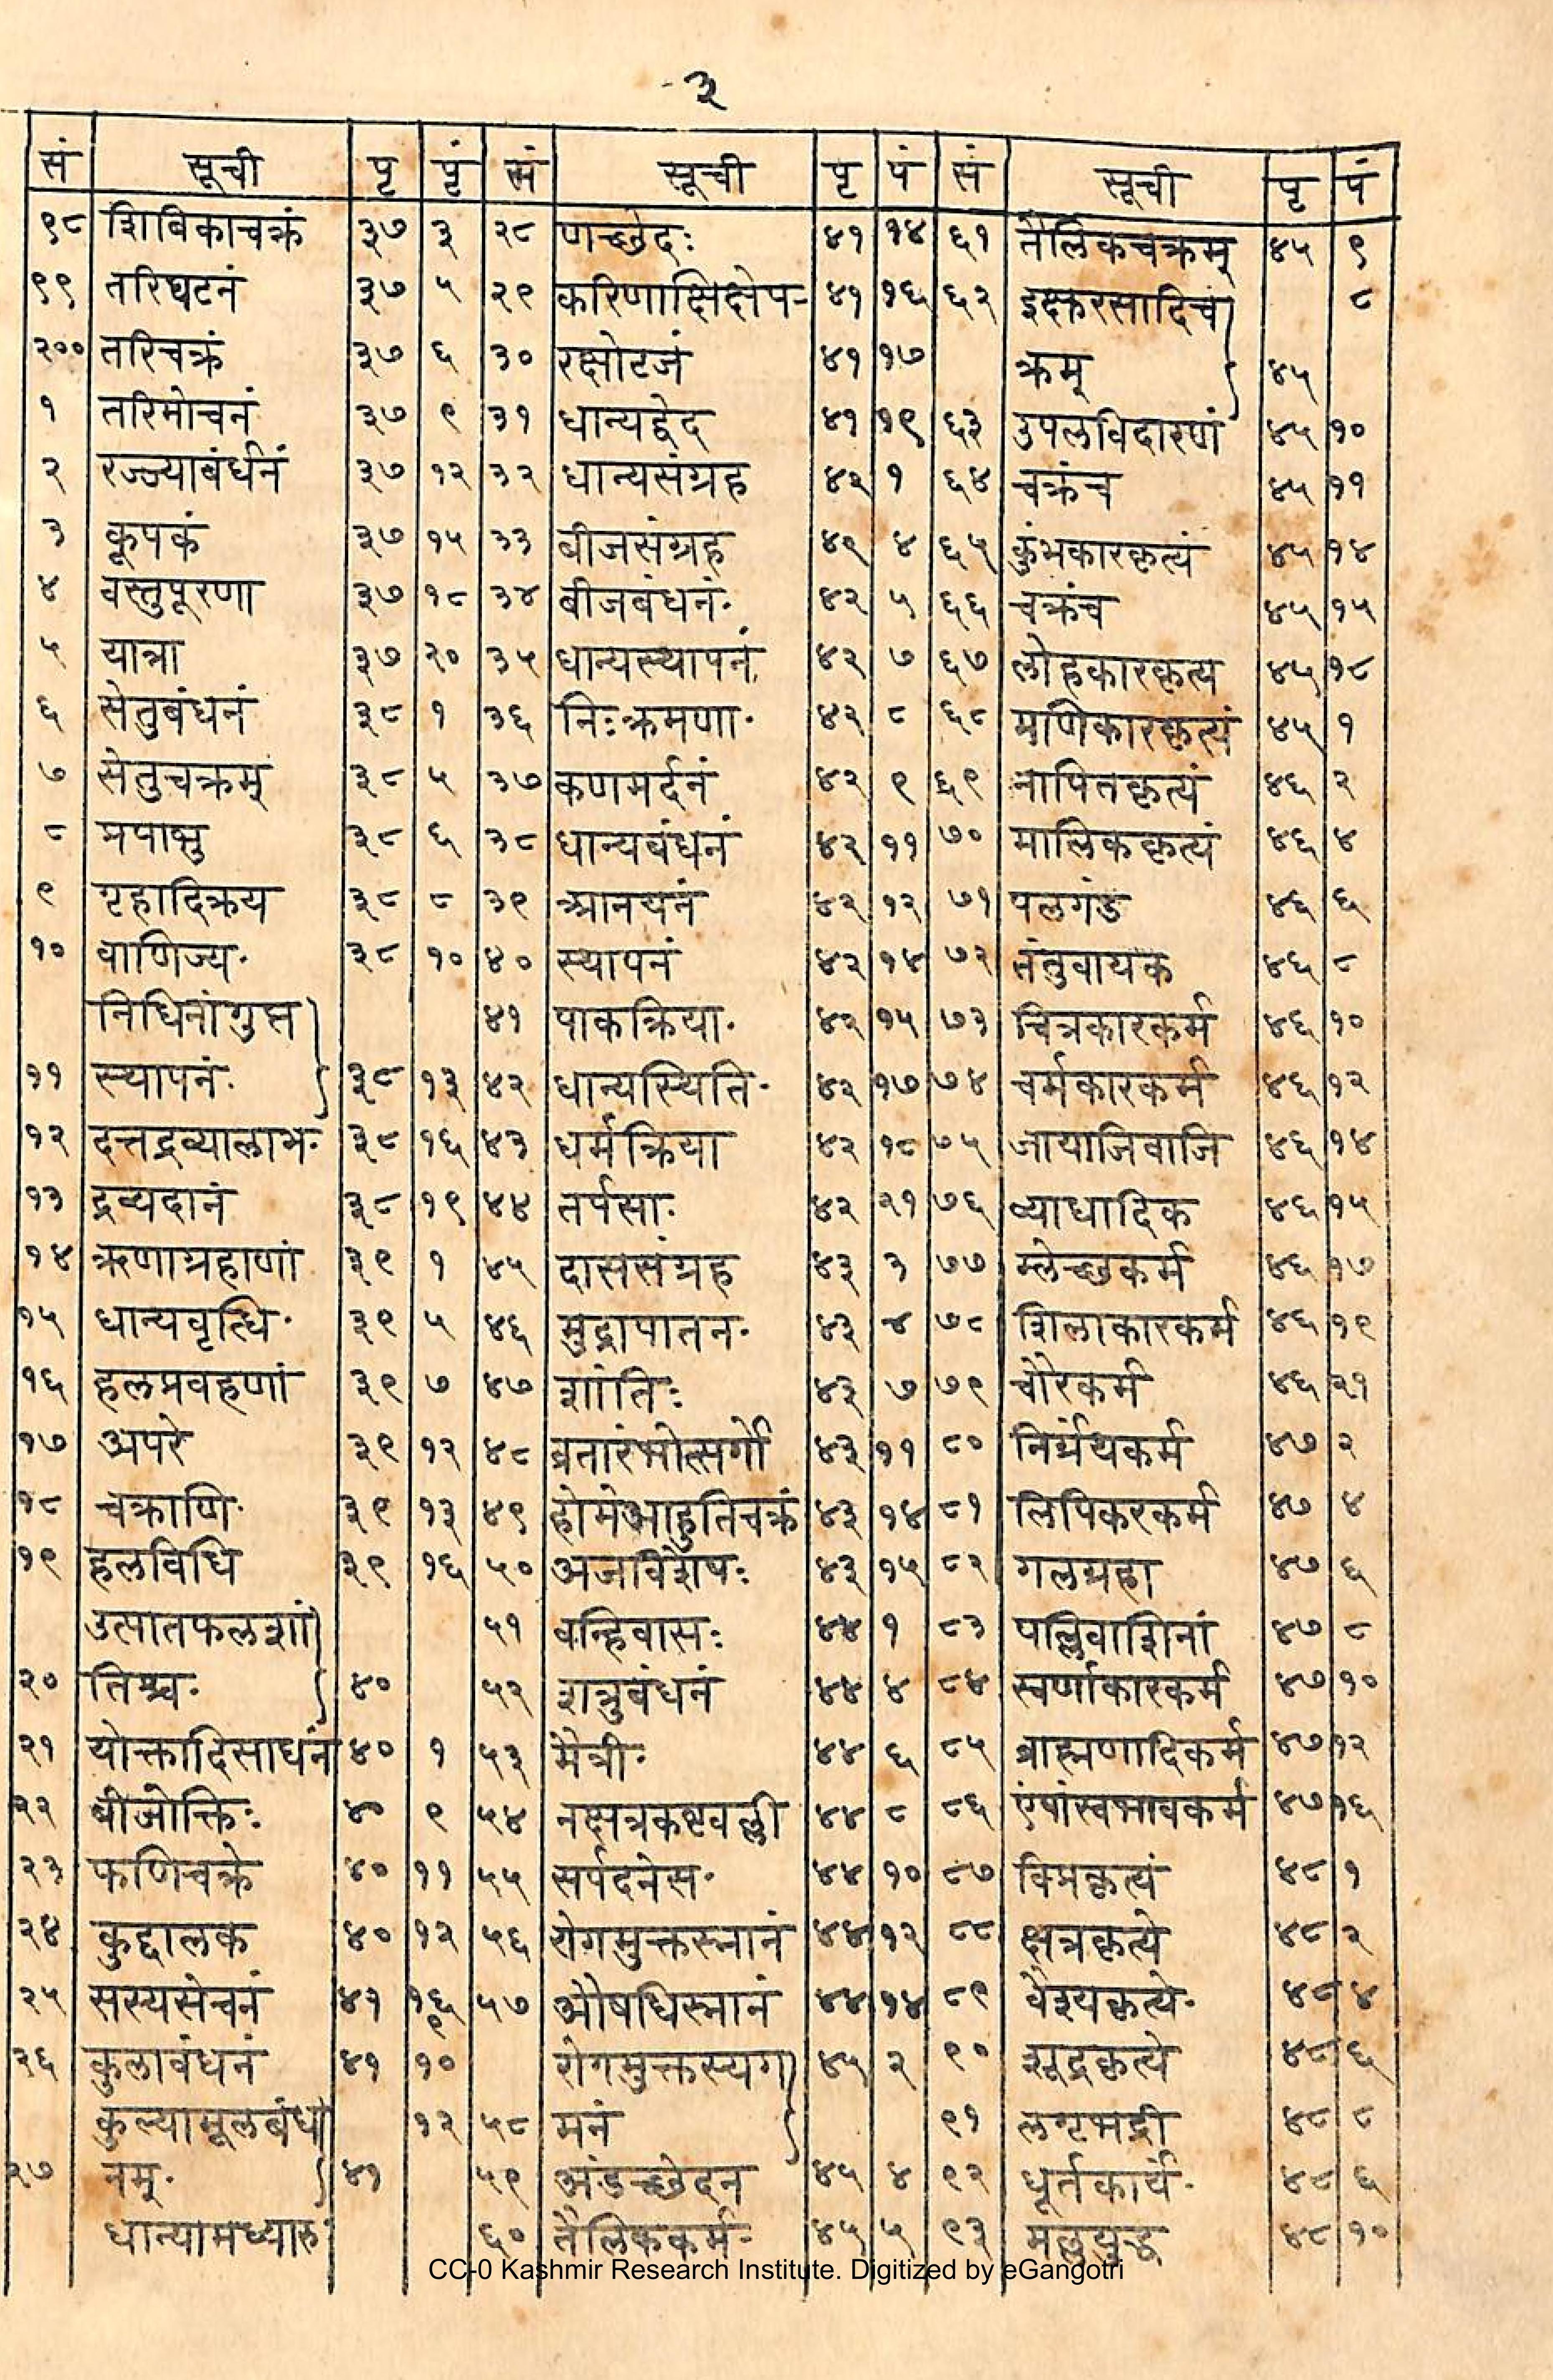 ३
सं सूची पृ पृं सं सूची पृ पं सं सूची पृ पं
९८ शिविकाचक्रं ३७ ३ २८ णच्छेदः ४१ १४ ६१ तैलिकचक्रम् ४५ ९
९९ तरिघटनं ३७ ५ २९ करिणाक्षिक्षेप- ४१ १६ ६२ इक्षुरसादिच ८
२०० तरिचक्रं ३७ ६ ३० रक्षोटजं ४१ १७ क्रम् ४५
१ तरिमोचनं ३७ ९ ३१ धान्यद्वेद ४१ १९ ६३ उपलविदारणं ४५ १०
२ रज्ज्याबंधनं ३७ १२ ३२ धान्यसंग्रह ४२ १ ६४ चक्रंच ४५ ११
३ कूपकं ३७ १५ ३३ बीजसंग्रह ४२ ४ ६५ कुंभकारकृत्यं ४५ १४
४ वस्तुपूरणा ३७ १८ ३४ बीजबंधनं· ४२ ५ ६६ चक्रंच ४५ १५
५ यात्रा ३७ २० ३५ धान्यस्थापनं ४२ ७ ६७ लोहकारकृत्य ४५ १८
६ सेतुबंधनं ३८ १ ३६ निःक्रमणा· ४२ ८ ६८ मणिकारकृत्यं ४५ १
७ सेतुचक्रम् ३८ ५ ३७ कणमर्दनं ४२ ९ ६९ नापितकृत्यं ४६ २
८ प्रपासु ३८ ६ ३८ धान्यबंधनं ४२ ११ ७० मालिककृत्यं ४६ ४
९ गृहादिक्रय ३८ ८ ३९ आनयनं ४२ १२ ७१ पलगंड ४६ ६
१० वाणिज्य· ३८ १० ४० स्थापनं ४२ १४ ७२ तंतुवायक ४६ ८
निधिनांगुप्त ४१ पाकक्रिया· ४२ १५ ७३ चित्रकारकर्म ४६ १०
११ स्थापनं· ३८ १३ ४२ धान्यस्थिति· ४२ १७ ७४ चर्मकारकर्म ४६ १२
१२ दत्तद्रव्यालाभः ३८ १६ ४३ धर्मक्रिया ४२ १८ ७५ जायाजिवाजि ४६ १४
१३ द्रव्यदानं ३८ १९ ४४ तर्पसाः ४२ २१ ७६ व्याधादिक ४६ १५
१४ ऋणाग्रहाणां ३९ १ ४५ दाससंग्रह ४३ ३ ७७ म्लेच्छकर्म ४६ १७
१५ धान्यवृत्धि· ३९ ५ ४६ मुद्रापातन· ४३ ४ ७८ शिलाकारकर्म ४६ १९
१६ हलप्रवहणां ३९ ७ ४७ शांतिः ४३ ७ ७९ चौरकर्म ४६ २१
१७ अपरे ३९ १२ ४८ व्रतारंभोत्सर्गो ४३ ११ ८० निर्ग्रंयकर्म ४७ २
१८ चक्राणि· ३९ १३ ४९ होमेआहुतिचक्रं ४३ १४ ८१ लिपिकरकर्म ४७ ४
१९ हलविधि ३९ १६ ५० अजविशेषः ४३ १५ ८२ गलग्रहा ४७ ६
उत्पातफलशां ५१ वन्हिवासः ४४ १ ८३ पल्लिवाशिनां ४७ ८
२० तिश्च· ४० ५२ शत्रुबंधनं ४४ ४ ८४ स्वर्णाकारकर्म ४७ १०
२१ योक्तादिसाधनं ४० १ ५३ मैत्री· ४४ ६ ८५ ब्राह्मणादिकर्म ४७ १२
२२ बीजोक्तिः ४० ९ ५४ नक्षत्रकष्टवल्ली ४४ ८ ८६ एंषांस्वभावकर्म ४७ १६
२३ फणिचक्रे ४० ११ ५५ सर्पदनेस· ४४ १० ८७ विप्रकृत्यं ४८ १
२४ कुद्दालक ४० १२ ५६ रोगमुक्तस्नानं ४४ १२ ८८ क्षत्रकृत्ये ४८ २
२५ सस्यसेचनं ४१ १६ ९ ५७ औषधिस्नानं ४४ १४ ८९ वैश्यकृत्ये· ४८ ४
२६ कुलाबंधनं ४१ १० रोगमुक्तस्यग ४५ २ ९० शूद्रकृत्ये ४८ ६
कुल्यामूलबंध १२ ५८ मनं ९१ लग्टभद्री ४८ ८
२७ नम्· ४१ ५९ अंडच्छेदन ४५ ४ ९२ धूर्तकार्य· ४८ ६
धान्यामध्यारु ६० तैलिककर्म· ४५ ५ ९३ मल्लयुद्ध ४८ १०
CC-0 Kashmir Research Institute. Digitized by eGangotri